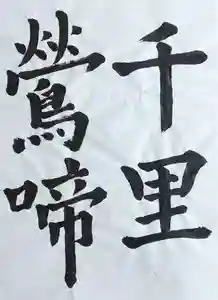 千里
鶯啼